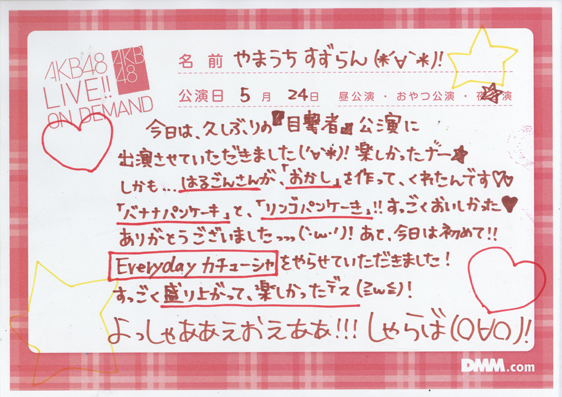 AKB48
LIVE!!
ON DEMAND
AKB
48
名前 やまうち すずらん (*´∀`*)!
公演日 5月 24日 昼公演・おやつ公演・夜公演
今日は、久しぶりの『目撃者』公演に
出演させていただきました('∀'*)! 楽しかったデー★
しかも…はるごんさんが、「おかし」を作って、くれたんです♡♡
「バナナパンケーキ」と、「リンゴパンケーき」!! すっごくおいしかった♥
ありがとうございましたっっっ(`・ω・´)! あと、今日は初めて!!
Everyday カチューシャをやらせていただきました!
すっごく盛り上がって、楽しかったデス(≧ω≦)!
よっしゃああえおえああ!!! しゃらば(O∀O)!
DMM.com